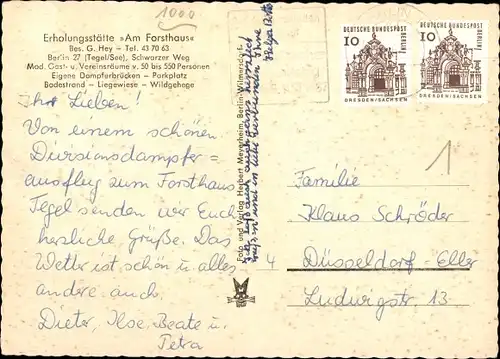 1000
Erholungsstätte »Am Forsthaus«
Bes. G. Hey – Tel. 43 70 63
Berlin 27 (Tegel/See), Schwarzer Weg
Mod. Gast- u. Vereinsräume v. 50 bis 550 Personen
Eigene Dampferbrücken – Parkplatz
Badestrand – Liegewiese – Wildgehege
Ihr Lieben!
Von einem schönen
Dampfer=
ausflug zum Forsthaus
Tegel senden wir Euch
herzliche Grüße. Das
Wetter ist schön u. alles
andere auch.
Dieter, Ilse, Beate u.
Petra
Foto und Verlag Herbert Meyerheim, Berlin-Wilmersdorf
10
DEUTSCHE BUNDESPOST
BERLIN
DRESDEN/SACHSEN
10
DEUTSCHE BUNDESPOST
BERLIN
DRESDEN/SACHSEN
1
Familie
Klaus Schröder
4 Düsseldorf-Eller
Ludwigstr. 13